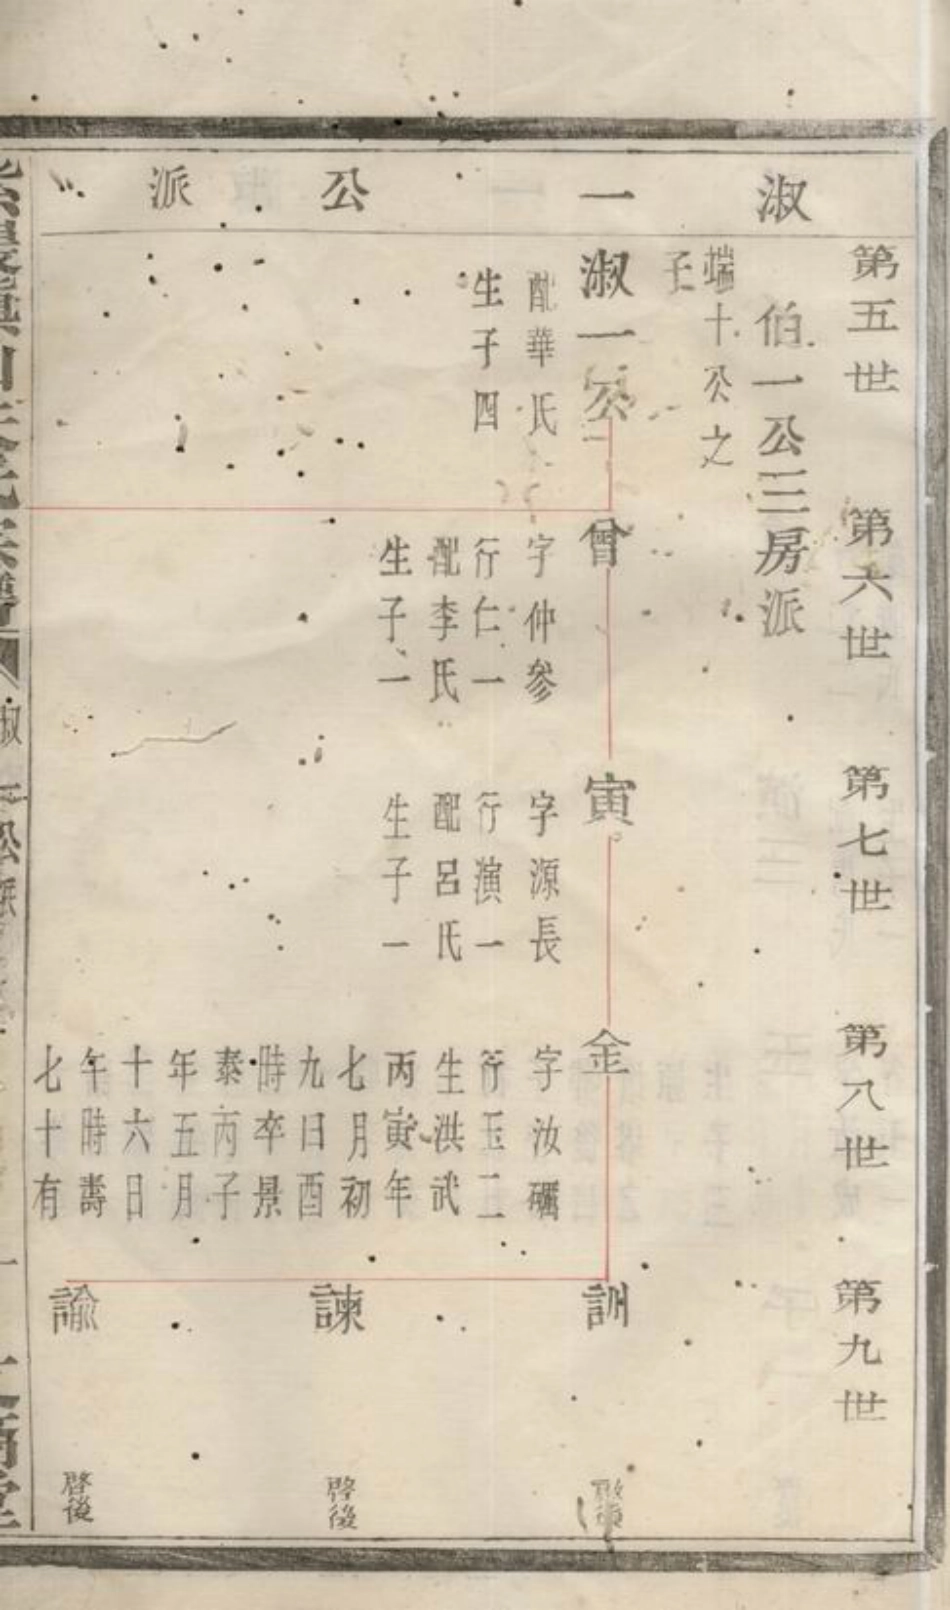 淑一公派
第五世
第六世
第七世
第八世
第九世
伯一公三房派
端十公之
子
淑一公
配華氏
生子四
曾
字仲參
行仁一
配李氏
生子一
寅
字源長
行演一
配呂氏
生子一
金
字汝礪
行玉二
生洪武
丙寅年
七月初
九日酉
時卒景
泰丙子
年五月
十六日
午時壽
七十有
訓
啓後
諫
啓後
諭
啓後